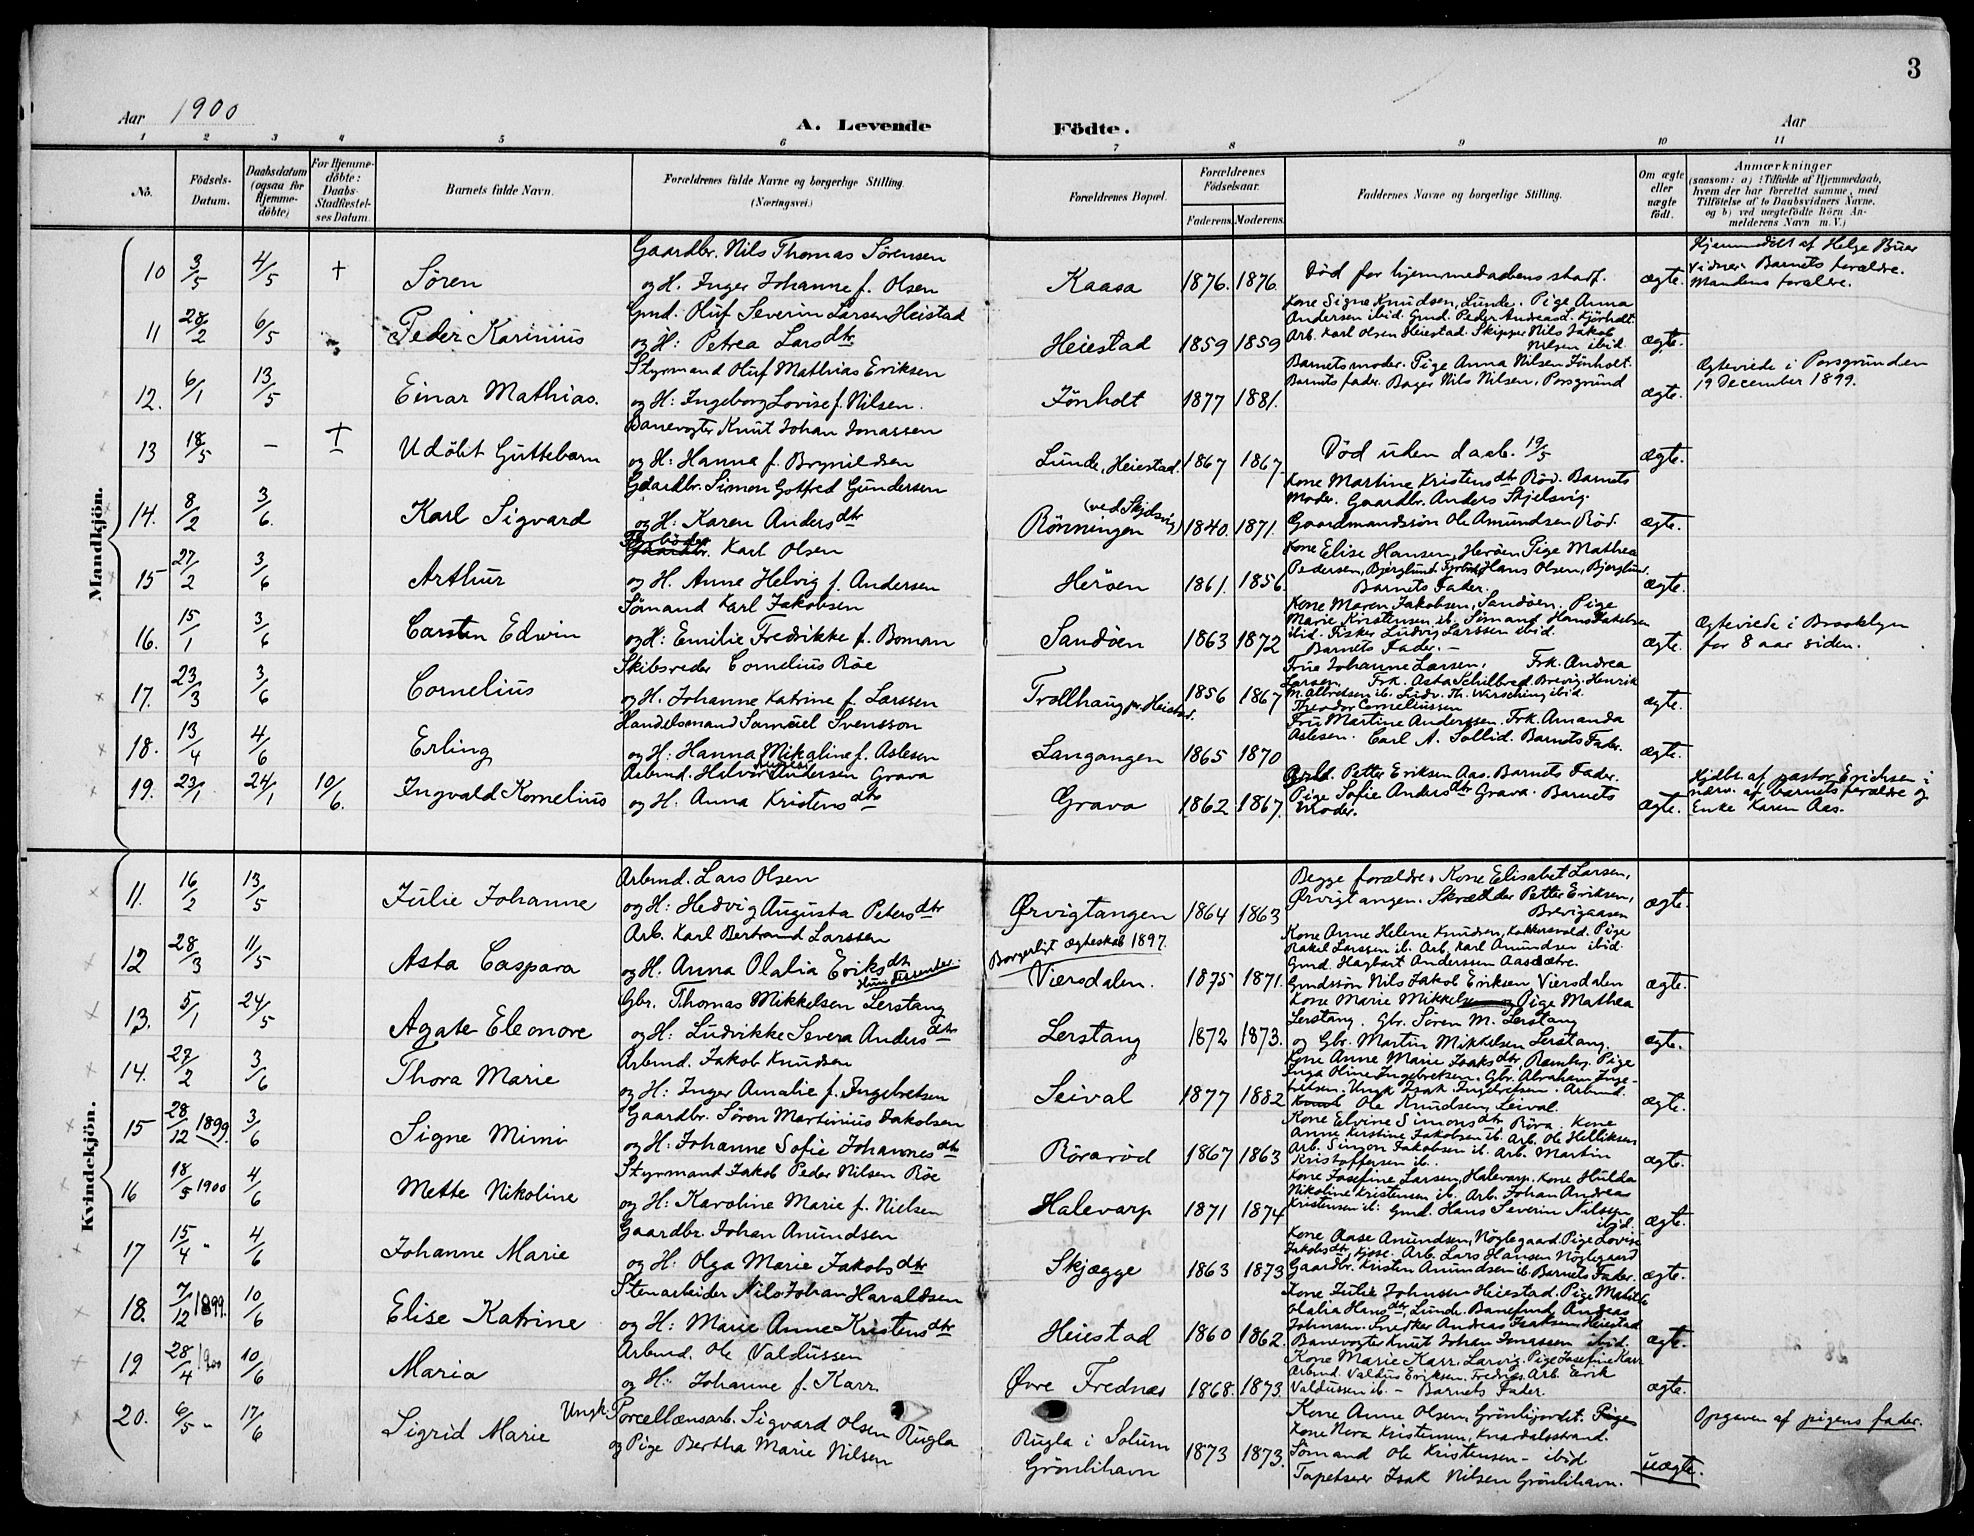 3
Aar 1900
A. Levende Födte.
Aar
1 2 3 4 5 6 7 8 9 10 11
No.
Födsels-Datum.
Daabsdatum (ogsaa for Hjemme-döbte)
For Hjemme-döbte: Daabs-Stadfæstel-ses Datum.
Barnets fulde Navn.
Forældrenes fulde Navne og borgerlige Stilling. (Næringsvei.)
Forældrenes Bopæl.
Forældrenes Födselsaar.
Faderens. Moderens.
Faddernes Navne og borgerlige Stilling.
Om ægte eller uægte födt.
Anmærkninger
(saasom: a) i Tilfælde af Hjemmedaab, hvem der har forrettet samme, med Tilföielse af to Daabsvidners Navne, og b) ved uægtefödte Börn An-melderens Navn m. V.)
Mandkjön.
Gaardbr. Nils Thomas Sørensen
10 3/5 4/5 + Søren og H. Inger Johanne f. Olsen Kaasa 1876. 1876. Død før hjemmedaabens stadf. ægte.
Hjemmedøbt af Helge Buer
Vidner. Barnets forældre.
Mandens forældre.
Gmd. Oluf Severin Larsen Heistad
11 28/2 6/5 Peder Karinius og H: Petrea Larsdtr Heiestad 1859 1859 ægte.
Kone Signe Knudsen, Lunde. Pige Anna
Andersen ibid. Gmd. Peder Andreas L. Kjørholt
Arb. Karl Olsen Heiestad. Skipper Nils Jakob
Nilsen ibid.
Styrmand Oluf Mathias Eriksen
12. 6/1 13/5 Einar Mathias. og H: Ingeborg Lovise f. Nilsen. Jönholt 1877 1881. ægte.
Barnets moder. Pige Anna Nilsen Jönholt.
Barnets fader. Bager Nils Nilsen, Porsgrund
Ægteviede i Porsgrunden
19 December 1899.
Banevogter Knut Johan Jonassen
13 18/5 – + Udöbt Guttebarn og H: Hanna f. Brynildsen Lunde, Heiestad. 1867 1867. Död uden daab. 19/5 ægte.
Gaardbr. Simon Gotfred Gundersen
14. 8/2 3/6. Karl Sigvard og H: Karen Andersdtr Rönningen (ved Skjelsvig) 1840. 1871. ægte.
Kone Martine Kristensdtr Röd. Barnets
Moder. Gaardbr. Anders Skjelsvig.
Gaardmandssön Ole Amundsen Röd.
Gaardbr. Karl Olsen
15 27/2 3/6 Arthur og H. Anne Helvig f. Andersen Heröen 1861. 1856 ægte.
Kone Elise Hansen, Heröen Pige Mathea
Pedersen, Bjerglund. Hans Olsen, Bjerglund.
Barnets Fader.
Sömand Karl Jakobsen
16. 15/1 3/6 Carsten Edwin og H: Emilie Fredrikke f. Boman Sandöen 1863 1872 ægte.
Kone Maren Jakobsen, Sandöen, Pige
Marie Kristensen ib. Sömand Hans Jakobsen
ibid. Fisker Ludvig Larssen ibid.
Barnets Fader. –
Ægteviede i Brooklyn
for 8 aar siden.
Skibsreder Cornelius Röe
17. 23/3 3/6 Cornelius og H. Johanne Katrine f. Larssen Trollhaug pr. Heistad. 1856 1867 ægte.
Frue Johanne Larsen. Frk. Andrea
Larsen. Frk. Asta Schilbred. Brevig. Henrik
M. Albretsen ib. Ludv. Th. Warsching ibid.
Theodor Corneliussen
Handelsmand Samuel Svensson
18. 13/4 4/6 Erling og H: Hanna Mikaline f. Aslesen Langangen 1865 1870 ægte.
Fru Martine Anderssen. Frk. Amanda
Aslesen. Carl A. Sollid. Barnets Fader.
Arbmd. Halvor Andersen Grava
19. 23/1. 24/1 10/6. Ingvald Kornelius og H. Anna Kristensdtr Grava 1862 1867. ægte.
Petter Eriksen Aas. Barnets Fader.
Pige Sofie Andersdtr Grava. Barnets
Moder.
Hjdbt. af pastor Erichsen i
nærv. af barnets forældre og
Enke Karen Aas.
Kvindekjön.
Arbmd. Lars Olsen
11. 16/2 13/5 Julie Johanne og H: Hedvig Augusta Petersdtr Ørvigtangen 1864 1863 ægte.
Begge forældre. Kone Elisabet Larsen,
Ørvigtangen. Skrædder Petter Eriksen,
Brevigaasen
Arb. Karl Bertrand Larssen
12 28/3 11/5 Asta Caspara og H. Anna Olalia Eriksdtr Borgerligt Ægteskab 1897. Viersdalen. 1875 1871. ægte.
Kone Anne Helene Knudsen, Kokkersvold. Pige
Rakel Larssen ib. Arb. Karl Amundsen ibid.
Gmd. Hagbart Anderssen Aasdætre.
Gmdssön Nils Jakob Eriksen Viersdalen
Gbr. Thomas Mikkelsen Lerstang
13. 5/1 24/5 Agate Eleonore og H: Ludvikke Severa Andersdtr Lerstang 1872 1873. ægte.
Kone Marie Mikkelsen Pige Mathea
Lerstang. Gbr. Sören M. Lerstang
og Gbr. Martin Mikkelsen Lerstang.
Arbmd. Jakob Knudsen
14. 27/2 3/6 Thora Marie og H: Inger Amalie f. Ingebretsen Leival 1877 1882 ægte.
Kone Anne Marie Isaksdtr, Pige
Inga Oline Ingebretsen. Gbr. Abraham Inge-
bretsen. Ungk. Isak Ingebretsen. Arbmd.
Ole Knudsen, Leival.
Gaardbr. Sören Martinius Jakobsen
15 28/12 1899. 3/6 Signe Mimi og H: Johanne Sofie Johannesdtr Röraröd 1867 1863 ægte.
Kone Elvine Simonsdtr Röra, Kone
Anne Kristine Jakobsen ib. Arb. Ole Helliksen
Arb. Simon Jakobsen ib. Arb. Martin
Kristoffersen ib.
Styrmand Jakob Peder Nilsen Röe
16 18/5 1900 4/6 Mette Nikoline og H: Karoline Marie f. Nielsen Halevarp 1871 1874 ægte.
Kone Josefine Larsen, Halevarp. Kone Hulda
Nikoline Kristensen ib. Arb. Johan Andreas
Kristensen ib. Gmd. Hans Severin Nilsen
ibid.
Gaardbr. Johan Amundsen
17 15/4 " 4/6 Johanne Marie og H: Olga Marie Jakobsdtr Skjægge 1863 1873 ægte.
Kone Aase Amundsen, Nöglegaard, Pige Lovise
Jakobsdtr Kjose. Arb. Lars Hansen Nöglegaard
Gaardbr. Kristen Amundsen ib. Barnets Fader.
Stenarbeider Nils Johan Haraldsen
18. 7/12 1899. 10/6 Elise Katrine og H: Marie Anne Kristensdtr Heiestad 1860 1862. ægte.
Kone Julie Johnsen Heiestad. Pige Matilde
Olalia Hansdtr, Lunde. Andreas
Johnsen. Snedker Andreas Isaksen Heiestad
Banevogter Knut Johan Jonassen ibid.
Arbmd. Ole Valdussen
19 28/4 1900 10/6 Maria og H: Johanne f. Karr. Øvre Frednæs 1868. 1873. ægte.
Kone Marie Karr, Larvig. Pige Josefine Karr
Arbmd. Valdus Eriksen. Frednes. Arb. Eerik
Valdussen ib. – Barnets Fader.
Ungk. Porcellænsarb. Sigvard Olsen Rugla
20. 6/5 – 17/6 Sigrid Marie og Pige Bertha Marie Nilsen Rugla i Solum Grönlihavn 1873 1873. uægte.
Kone Anne Olsen, Grönlijordet. Pige
Kone Nera Kristensen, Knardalsstrand.
Sömand Ole Kristensen – ibid
Tapetserer Isak Nilsen Grönlihavn.
Opgeven af pigens fader.